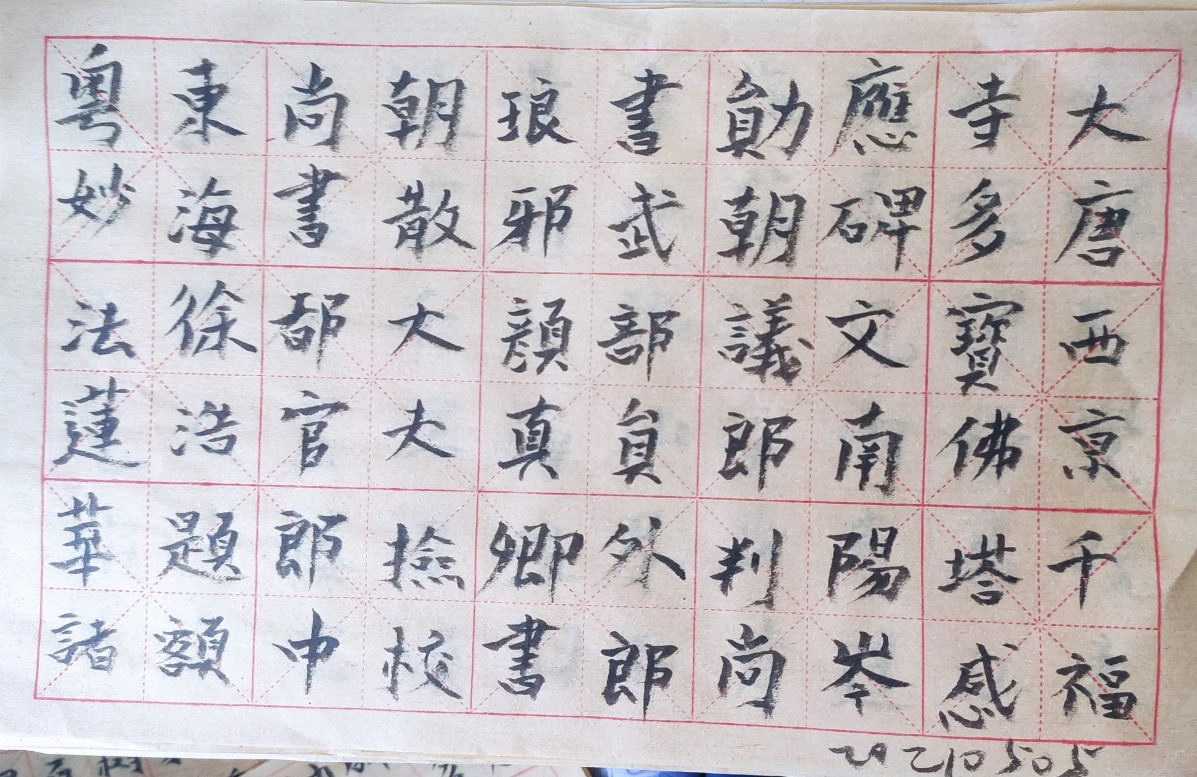 大唐西京千福
寺多寶佛塔感
應碑文南陽岑
勛朝議郎判尚
書武部員外郎
琅邪顏真卿書
朝散大夫撿校
尚書都官郎中
東海徐浩題額
粵妙法蓮華諸
20210505